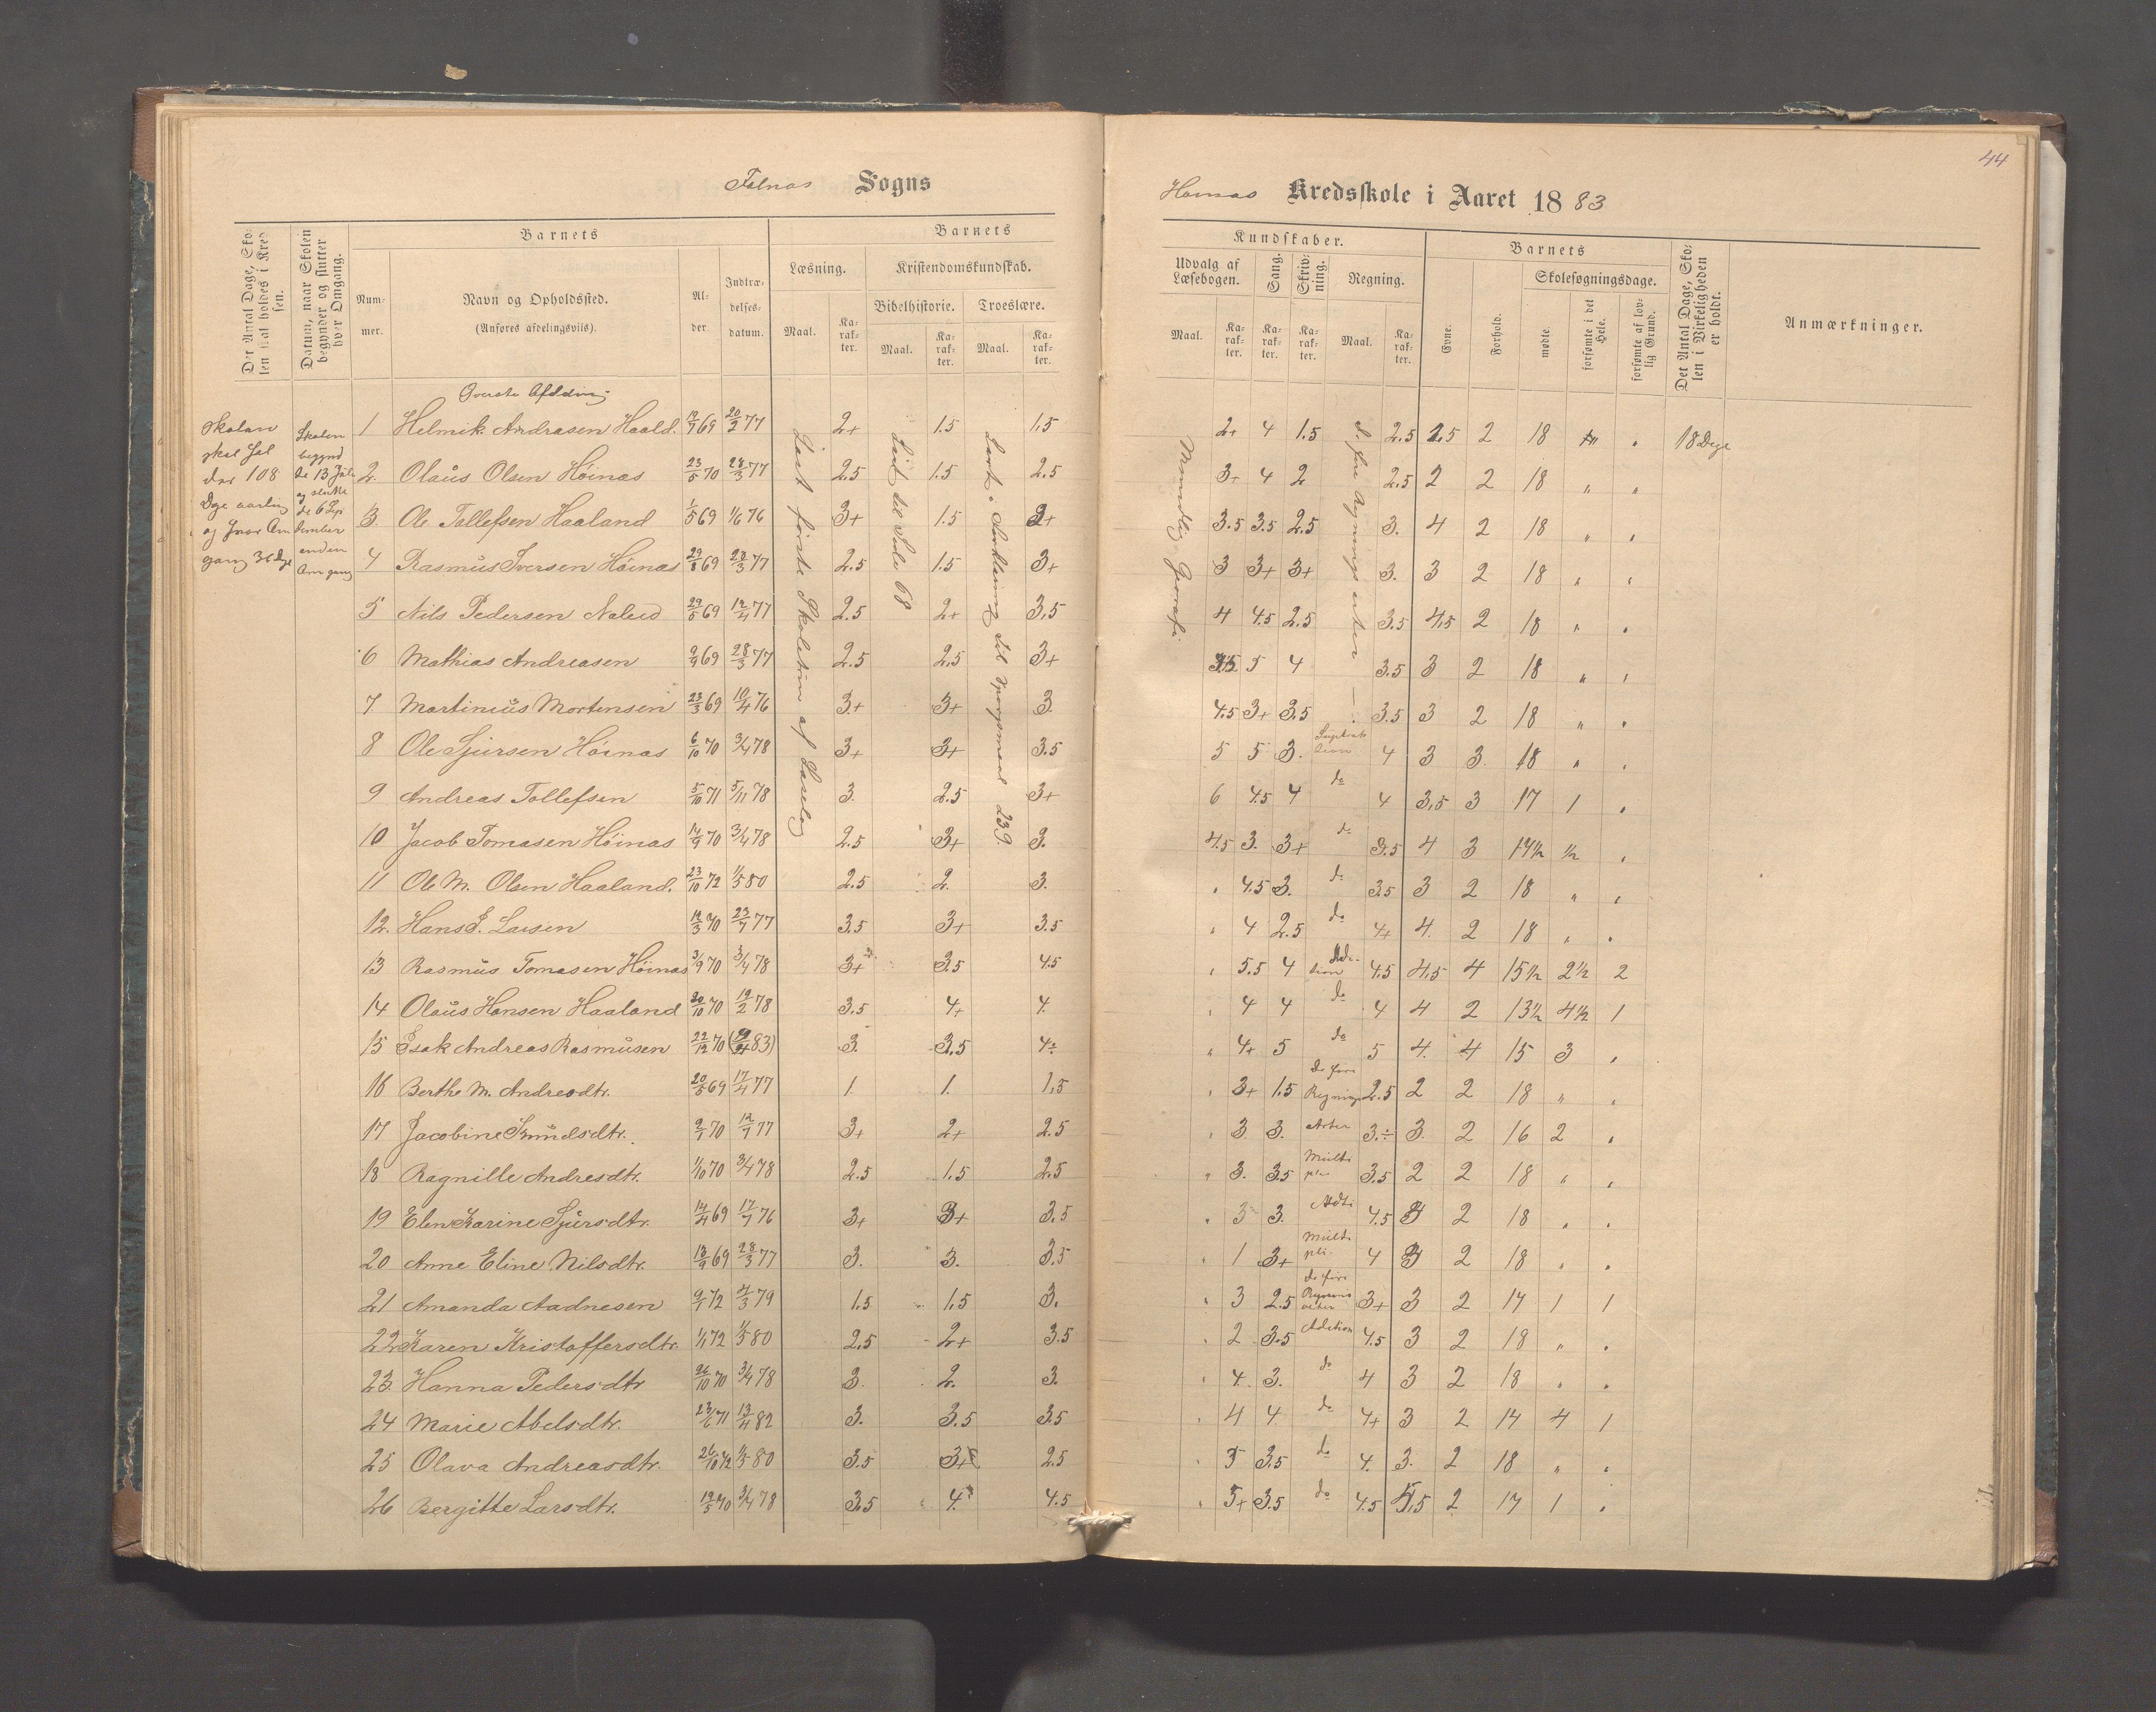 Falnas Sogns
Det Antal Dage, Skolen skal holdes i Kredsen.
Datum, naar Skolen begynder og slutter hver Omgang.
Barnets
Nummer.
Navn og Opholdssted.
(Anføres afdelingsviis).
Alder.
Indtrædelsesdatum.
Barnets
Læsning.
Maal.
Karakter.
Kristendomskundskab.
Bibelhistorie.
Maal.
Karakter.
Troeslære.
Maal.
Karakter.
Øverste Afdeling
skal
108
Dage
Skolen
begynd
de 13 Juli
og slutte
de 6 Sep
tember
anden
Læst første Skoletrin af Læsebog
Læst til Side 68
Læst i Forklaring til Spørgsmaal 239.
1 Helmik Andrasen Haald. 19/7 69 20/2 77 2+ 1.5 1.5
2. Olaus Olsen Høinas 23/5 70 28/3 77 2.5 1.5 2.5
3. Ole Tollefsen Haaland 1/5 69 1/6 76 3+ 1.5 3+
4 Rasmus Iversen Høinas 29/8 69 28/3 77 2.5 1.5 3+
5 Nils Pedersen Naleid 29/5 69 12/4 77 2.5 2+ 3,5
6 Mathias Andreasen 9/9 69 28/3 77 2.5 2,5 3+
7 Martinius Mortensen 23/3 69 10/4 76 3+ 3+ 3.
8 Ole Sjursen Høinas 6/10 70 3/4 78 3+ 3+ 3.5
9 Andreas Tollefsen 5/10 71 5/11 78 3. 2.5 3+
10 Jacob Tomasen Høinas 14/9 70 3/4 78 2.5 3+ 3.
11 Ole M. Olsen Haaland. 23/10 72 1/5 80 2.5 2. 3.
12. Hans J. Larsen 12/3 70 23/7 77 3.5 3+ 3.5
13 Rasmus Tomasen Høinas 3/9 70 3/4 78 3+ 3.5 4.5
14 Olaus Hansen Haaland 20/10 70 19/2 78 3.5 4+ 4.
15 Isak Andreas Rasmusen 22/12 70 3. 3.5
16 Berthe M. Andreasdtr. 20/5 69 17/4 77 1. 1. 1,5
17 Jacobine 9/1 70 12/7 77 3+ 2+ 2.5
18 Ragnille Andresdtr. 1/10 70 3/4 78 2.5 1.5 2.5
19 Elen Karine Sjursdtr. 14/4 69 17/7 76 3+ 3+ 3.5
20 Anne Eline Nilsdtr. 18/9 69 28/3 77 3. 3. 3.5
21 Amanda Aadnesen 9/1 72 4/3 79 1.5 1.5 3.
22 Karen Kristoffersdtr. 1/1 72 1/5 80 2,5 2+ 3.5
23. Hanna Pedersdtr 26/10 70 3/4 78 3. 2. 3.
24 Marie Abelsdtr. 23/6 71 13/4 82 3. 3.5 3.5
25 Olava Andreasdtr. 26/10 72 1/5 80 3.5 3+ 2.5
26 Bergitte Larsdtr. 19/5 70 3/4 78 3.5 4. 4.5
44
Høinas Kredsskole i Aaret 1883
Kundskaber.
Udvalg af Læsebogen.
Maal.
Karakter.
Sang.
Karakter.
Skrivning.
Karakter.
Regning.
Maal.
Karakter.
Barnets
Evne.
Forhold.
Skolesøgningsdage.
mødte.
forsømte i det Hele.
forsømte af lovlig Grund.
Det Antal Dage, Skolen i Virkeligheden er holdt.
Anmærkninger.
Mundlig
d. fire Regningsarter
2+ 4 1.5 2.5 2.5 2 18 18 Dage
3+ 4 2 2.5 2 2 18 " "
3.5 3.5 2.5 3. 4 2 18 " "
3 3+ 3+ 3. 3 2 18 " "
4 4.5 2.5 3.5 4,5 2 18 " "
5 4 3.5 3 2 18 " "
4.5 3+ 3.5 3.5 3 2 18 " "
5 5 3. 4 3 3. 18 " "
6 4.5 4 do 4 3,5 3 17 1 "
4.5 3. 3+ do 3.5 4 3 17½ ½ "
" 4.5 3. do 3.5 3 2 18 " "
" 4 2.5 do 4+ 4. 2 18 " "
" 5.5 4 Addition 4.5 4,5 4 15½ 2½ 2
" 4 4 do 4 4 2 13½ 4½ 1
" 4+ 5 do 5 4. 4 15 3 "
" 3+ 1.5 de fire Regnings 2.5 2 2 18 " "
" 3 3. Arter 3.÷ 3. 2 16 2 "
" 3. 3.5 Multipli 3.5 2 2 18 " "
" 3 3. Addi 4.5 2 18 " "
" 1 3+ Multipli. 4 2 18 " "
" 3 2.5 de fire 3+ 3 2 17 1 1
" 2 3.5 Adition 4.5 3 2 18 " "
" 4. 3. do 4 3 2 18 " "
" 4 4. do 4+ 3 2 14 4 1
" 5 3.5 do 4. 3. 2 18 " "
" 5+ 3.5 do 4.5 4,5 2 17 1 "